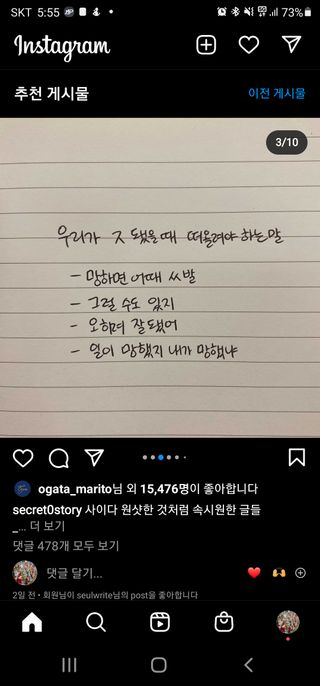 SKT 5:55
73%
Instagram
추천 게시물
이전 게시물
3/10
우리가 ㅈ 됐을 때 떠올려야 하는 말
- 망하면 어때 쓰발
- 그럴 수도 있지
- 오히려 잘됐어
- 일이 망했지 내가 망했냐
ogata_marito님 외 15,476명이 좋아합니다
secret0story 사이다 원샷한 것처럼 속시원한 글들
_... 더 보기
댓글 478개 모두 보기
댓글 달기...
2일 전 • 회원님이 seulwrite님의 post을 좋아합니다